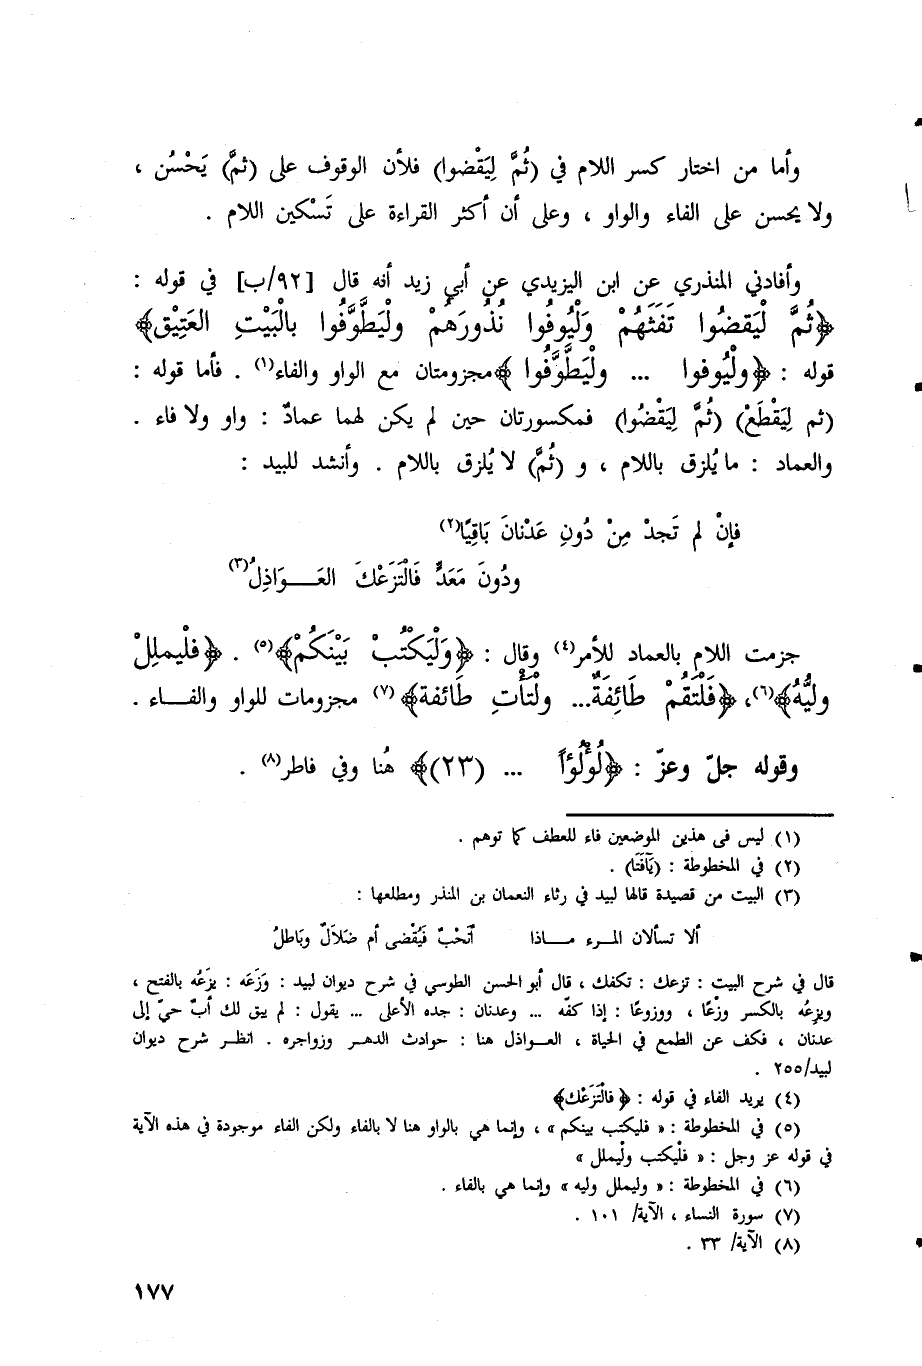 وأما من اختار كسر اللام في (ثُمَّ لِيَقْضوا) فلأن الوقوف على (ثمَّ) يَحْسُن ،
ولا يحسن على الفاء والواو ، وعلى أن أكثر القراءة على تَسْكين اللام .
وأفادني المنذري عن ابن اليزيدي عن أبي زيد أنه قال [٩٢/ب] في قوله :
﴿ثُمَّ لْيَقضُوا تَفَثَهُمْ وَلْيُوفُوا نُذُورَهُمْ ولْيَطَّوَّفُوا بالْبَيْتِ العَتِيْقِ﴾
قوله : ﴿ولْيُوفوا ... ولْيَطَّوَّفُوا ﴾مجزومتان مع الواو والفاء(١) . فأما قوله :
(ثم لِيَقْطَعْ) (ثُمَّ لِيَقْضُوا) فمكسورتان حين لم يكن لهما عمادٌ : واو ولا فاء .
والعماد : ما يُلزق باللام ، و (ثُمَّ) لا يُلزق باللام . وأنشد للبيد :
فإنْ لم تَجدْ مِنْ دُونِ عَدْنانَ بَاقِيًا(٢)
ودُونَ مَعَدٍّ فَالْتَزَعْكَ العَـــوَاذِلُ(٣)
جزمت اللام بالعماد للأمر(٤) وقال : ﴿وَلْيَكْتُبْ بَيْنَكُمْ﴾(٥) . ﴿فلْيملِلْ
وليُّهُ﴾(٦)، ﴿فَلْتَقُمْ طَائِفَةٌ... ولْتَأْتِ طَائفة﴾(٧) مجزومات للواو والفـــاء .
وقوله جلّ وعزّ : ﴿لُؤْلُؤاً ... (٢٣)﴾ هُنا وفي فاطر(٨) .
(١) ليس فى هذين الموضعين فاء للعطف كما توهم .
(٢) في المخطوطة : (يَآفَتَا) .
(٣) البيت من قصيدة قالها لبيد في رثاء النعمان بن المنذر ومطلعها :
ألا تسألان المـرء مـــاذا أنَحْبٌ فَيُقْضى أم ضَلاَلٌ وبَاطلُ
قال في شرح البيت : تزعك : تكفك ، قال أبو الحسن الطوسي في شرح ديوان لبيد : وَزَعَه : يزَعُه بالفتح ،
ويزِعُه بالكسر وزْعًا ، ووزوعًا : إذا كفّه ... وعدنان : جده الأعلى ... يقول : لم يبق لك أبٌ حيّ إلى
عدنان ، فكف عن الطمع في الحياة ، العـــواذل هنا : حوادث الدهـر وزواجره . انظـر شرح ديوان
لبيد/٢٥٥ .
(٤) يريد الفاء في قوله : ﴿ فالْتَزَعْك﴾
(٥) في المخطوطة : « فليكتب بينكم » ، وإنما هي بالواو هنا لا بالفاء ولكن الفاء موجودة في هذه الآية
في قوله عز وجل : « فلْيكتب ولْيملل »
(٦) في المخطوطة : « وليملل وليه » وإنما هي بالفاء .
(٧) سورة النساء ، الآية/ ١٠١ .
(٨) الآية/ ٣٣ .
١٧٧